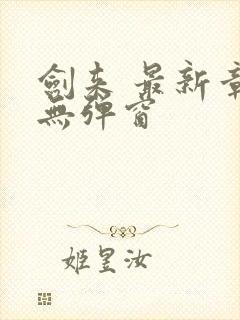 劍来 最新章
無彈窗
姬昱汝